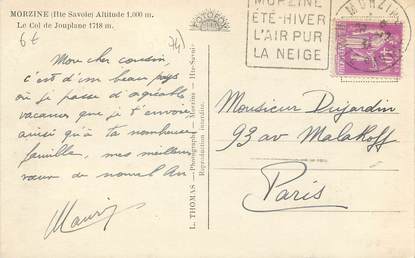 MORZINE (Hte Savoie) Altitude 1,000 m.
Le Col de Jouplane 1718 m.
6f
74
Mon cher cousin,
c'est d'un beau pays
où je passe d'agréable
vacances que je t'envoie
ainsi qu'à ta nombreuse
famille, mes meilleurs
vœux de nouvel An
L. THOMAS — Photographe — Morzine — Hte-Savoie
Reproduction interdite.
MORZINE
ÉTÉ-HIVER
L'AIR PUR
LA NEIGE
MORZINE
Monsieur Dujardin
93 av Malakoff
Paris